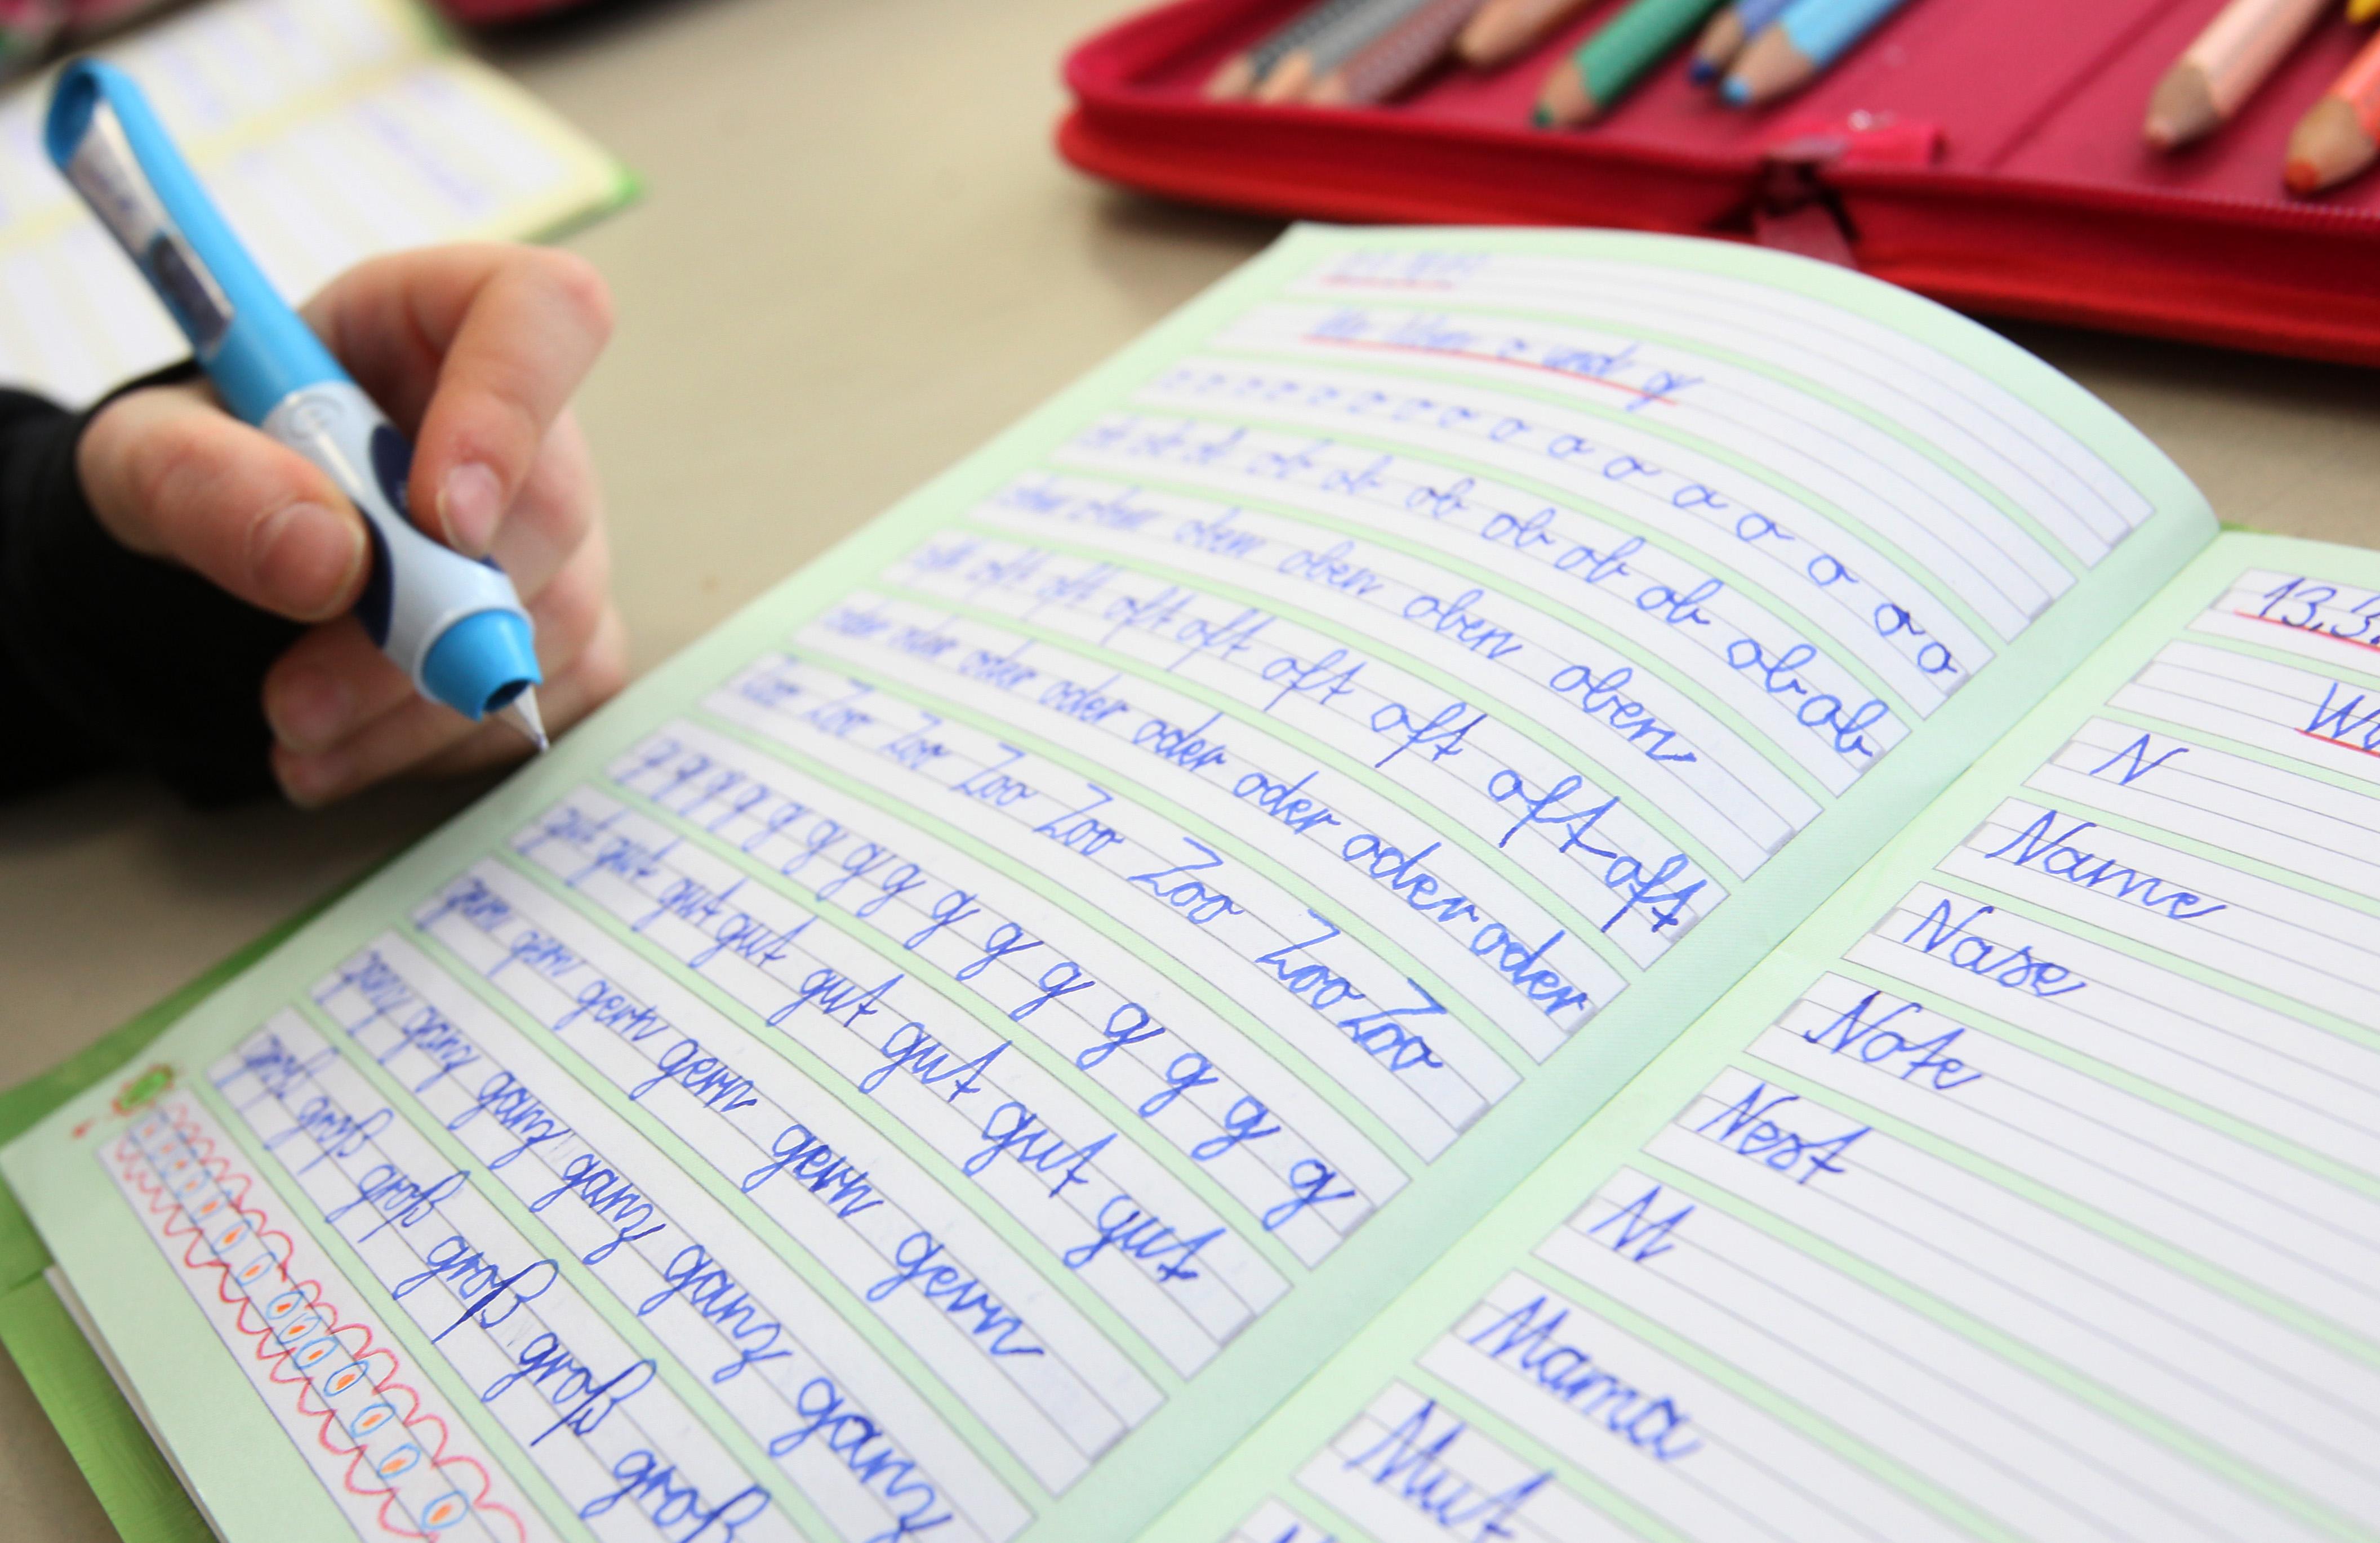 o und g
o o o o o o o o o o o o o o o o
ob ob ob ob ob ob ob ob ob ob ob
oben oben oben oben oben oben
oft oft oft oft oft oft oft oft oft
oder oder oder oder oder oder oder oder
Zoo Zoo Zoo Zoo Zoo Zoo Zoo Zoo
g g g g g g g g g g g g g g g
gut gut gut gut gut gut gut gut
gern gern gern gern gern gern
ganz ganz ganz ganz ganz ganz
groß groß groß groß groß groß
13.3.
N
Name
Nase
Note
Nest
M
Mama
Mut